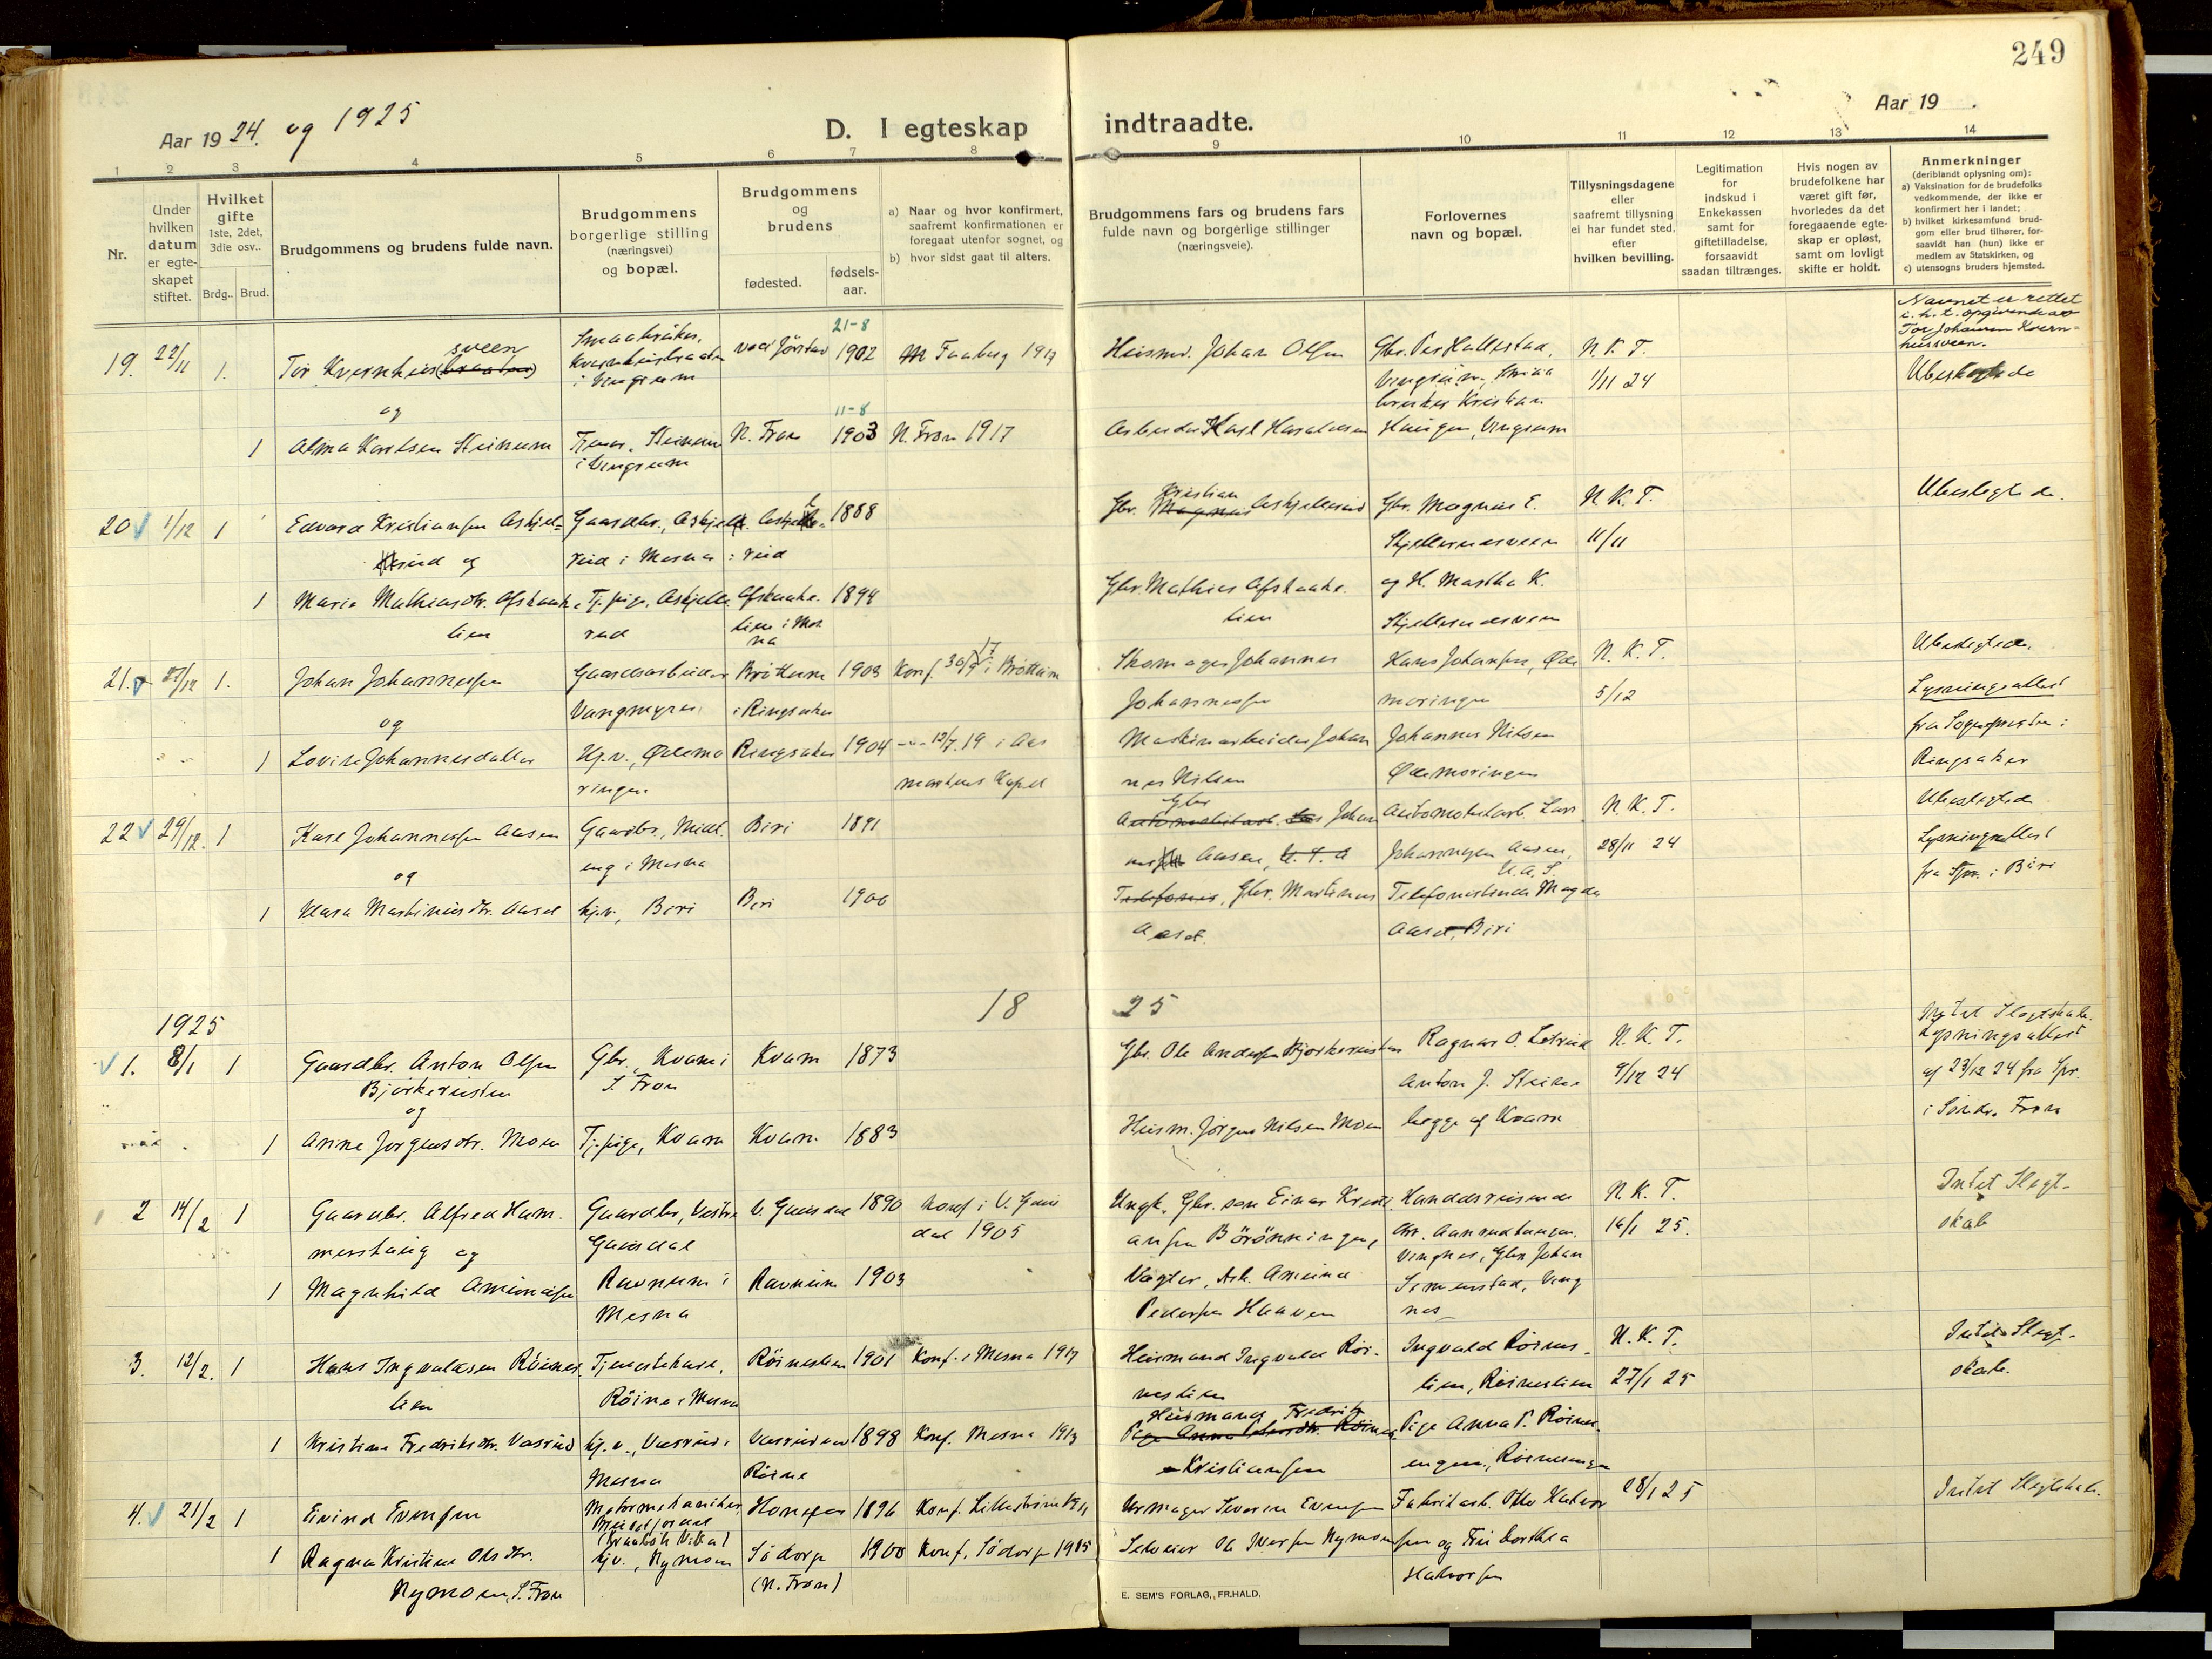 249
Aar 1924. og 1925
D. I egteskap indtraadte.
Aar 19 .
1 2 3 4 5 6 7 8 9 10 11 12 13 14
Nr.
Under hvilken datum er egteskapet stiftet.
Hvilket gifte 1ste, 2det, 3die osv..
Brdg.. Brud.
Brudgommens og brudens fulde navn.
Brudgommens borgerlige stilling (næringsvei) og bopæl.
Brudgommens og brudens
fødested.
fødsels-aar.
a) Naar og hvor konfirmert, saafremt konfirmationen er foregaat utenfor sognet, og
b) hvor sidst gaat til alters.
Brudgommens fars og brudens fars fulde navn og borgerlige stillinger (næringsveie).
Forlovernes navn og bopæl.
Tillysningsdagene eller saafremt tillysning ei har fundet sted, efter hvilken bevilling.
Legitimation for indskud i Enkekassen samt for giftetilladelse, forsaavidt saadan tiltrænges.
Hvis nogen av brudefolkene har været gift før, hvorledes da det foregaaende egteskap er opløst, samt om lovligt skifte er holdt.
Anmerkninger
(deriblandt oplysning om):
a) Vaksination for de brudefolks vedkommende, der ikke er konfirmert her i landet;
b) hvilket kirkesamfund brudgom eller brud tilhører, forsaavidt han (hun) ikke er medlem av Statskirken, og
c) utensogns bruders hjemsted.
Navnet er rettet
i. h. t. opgivende av
Tor Johansen Kvern-
hussveen.
19. 22/11 1. Tor Kvernhus(braaten) sveen
Smaabruker, Kvernhusbraaten i Vingrum
21-8 1902
Faaberg 1917
Husmd. Johan Olsen
Gbr. Per Hallestad, Vingrum, Smaabruker Kristian Haugen, Vingrum
N. K. T. 1/11 24
Ubeslegtede
og
1 Alma Karlsen Steinum
Tjener, Steinum i Vingrum
N. Fron
11-8 1903
N. Fron 1917
Arbeider Karl Haraldsen
20 1/12 1 Edvard Kristiansen Askjel-
rud og
Gaardbr., Askjellerud i Mesna
1888
Gbr. Kristian Askjellerud
Gbr. Magnus E. Skjellerudsveen
og H. Martha K. Skjellerudsveen
N. K. T. 11/11
Ubeslegtede.
1 Marie Mathiasdtr. Afskaake-
lien
Tj. pige, Askjellerud
Afskaakelien i Mesna
1894
Gbr. Mathias Afskaakelien
21. 27/12 1. Johan Johannessen
Gaardsarbeider Vangmyra
Brøttum i Ringsaker
1903
Konf. 30/9 17 i Brøttum
Skomager Johannes Johannessen
Hans Johansen, Ødemoringen
N. K. T. 5/12
Ubeslegtede.
Lysningsattest
fra Sognepresten i
Ringsaker
og
1 Lovise Johannesdatter
Hj. v., Ødemoringen
Ringsaker
1904
12/7. 19 i Aasmarkens Kapel
Maskinarbeider Johannes Nilsen
Johannes Nilsen Ødemoringen
22 29/12. 1 Karl Johannessen Aasen
Gaardbr., Midteng i Mesna
Biri
1891
Gbr Johannes Aasen
Automobilarb. Lars Johannessen Aasen, U.S.A.
N. K. T. 28/11 24
Ubeslegtede
Lysningsattest
fra Spr. i Biri
og
1 Klara Martinusdtr. Aaset
hj.v., Biri
Biri
1900
Gbr. Martinus Aaset.
Telefonistinde Magda Aaset, Biri
1925
18 25
1. 8/1 1 Gaardbr. Anton Olsen
Bjørkerusten
og
Gbr., Kvam i S. Fron
Kvam
1873
Gbr. Ole Andersen Bjørkerusten
Ragnar O. Letrud
Anton J. Steine
begge af Kvam
N. K. T. 9/12 24
Intet Slegtskab.
Lysningsattest
af 23/12 24 fra Spr.
i Søndre Fron
1 Anne Jørgensdtr. Moen
Tj. pige, Kvam
Kvam
1883
Husm. Jørgen Nilsen Moen
2 14/2 1 Gaardbr. Alfred Ham-
mershaug og
Gaardbr., Vestre Gausdal
V. Gausdal
1890
Konf i V. Gausdal 1905
Ungk. Gbr. søn Einar Kristiansen Börönningen,
Handelsreisende Chr. Aanrudhaugen, Vingnes, Gbr. Johan Simenstad, Vingnes
N. K. T. 16/1 25.
Intet Slegt-
skab
1 Magnhild Amundsen
Ravnum i Mesna
Ravnum
1903
Vogter, Arb. Amund Pedersen Haaven
3. 12/2. 1 Hans Ingvaldsen Röines-
lien
Tjenestekarl, Röine i Mesna
Röineslien
1901
Konf. i Mesna 1917
Husmand Ingvald Röineslien
Ingvald Röineslien, Röineslien
N. K. T. 27/1 25
Intet Slegt-
skab.
1 Kristine Fredriksdtr. Vasrud
hj. v., Vasrud i Mesna
Vasrud
Röine
1898
Konf. Mesna 1913
Husmand Fredrik Kristiansen
Pige Anna P. Röinesengen, Röinesengen
4. 21/2 1 Eivind Evensen
Motormekaniker,
Hønefos
1896
Konf. Lillestrøm 1911
Urmager Severin Evensen
Fabrikarb. Otto Halvorsen og Fru Dorthea Halvorsen
28/1 25
Intet Slegtskab.
1 Ragna Kristine Olsdtr.
Nymoen, S. Fron
hj.v., Nymoen
Sødorp (N. Fron)
1900
Konf. Sødorp 1915
Selveier Ole Iversen Nymoen
E. SEM'S FORLAG., FR.HALD.